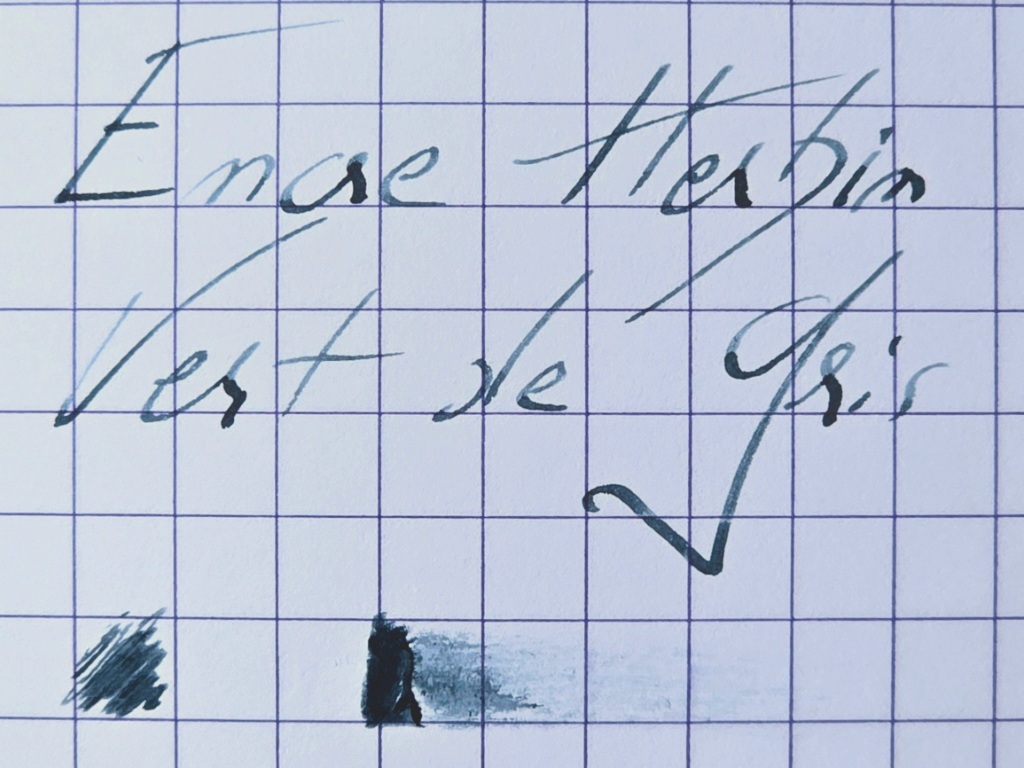 Encre Herbin
Vert de Gris